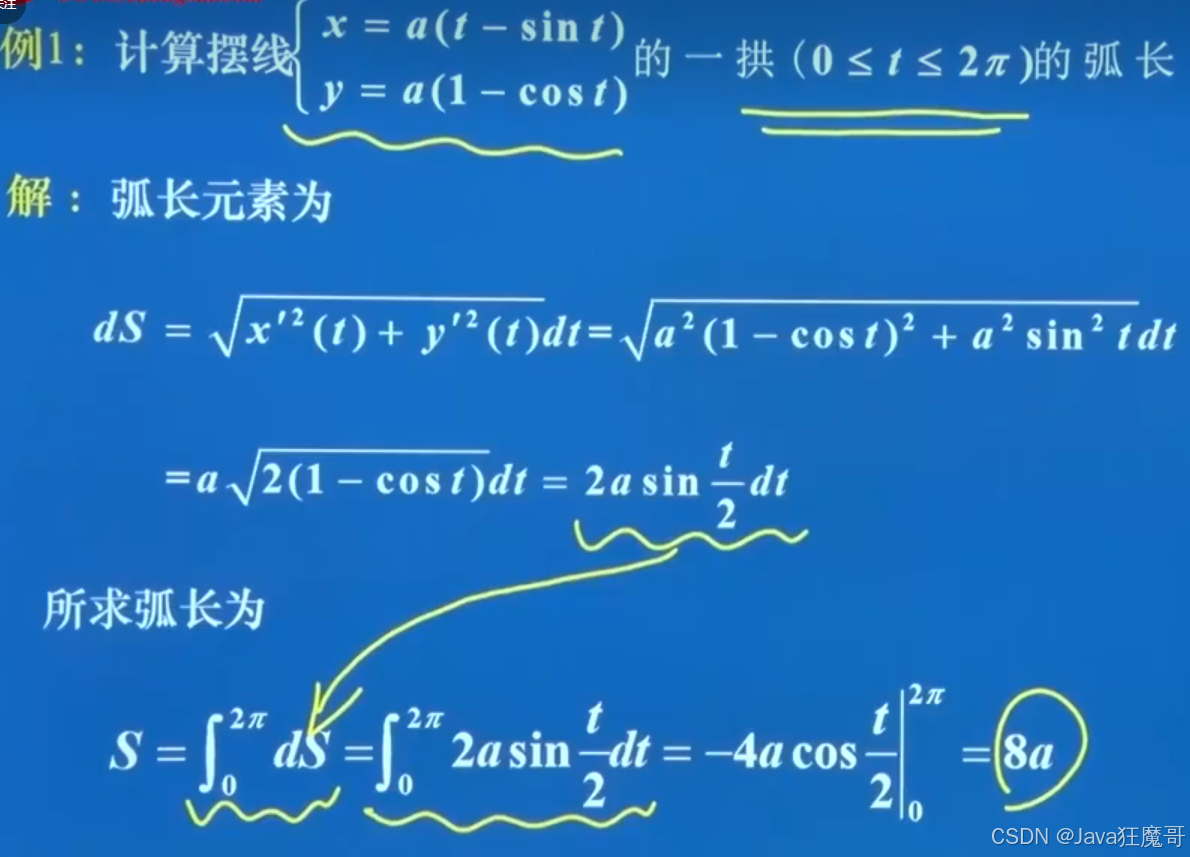 注
例1: 计算摆线{ x = a(t − sin t)
y = a(1 − cos t) 的一拱(0 ≤ t ≤ 2π)的弧长
解: 弧长元素为
dS = √(x′²(t) + y′²(t))dt = √(a²(1 − cos t)² + a² sin² t)dt
= a√(2(1 − cos t))dt = 2a sin t/2 dt
所求弧长为
S = ∫₀^2π dS = ∫₀^2π 2a sin t/2 dt = −4a cos t/2 |₀^2π = 8a
CSDN @Java狂魔哥